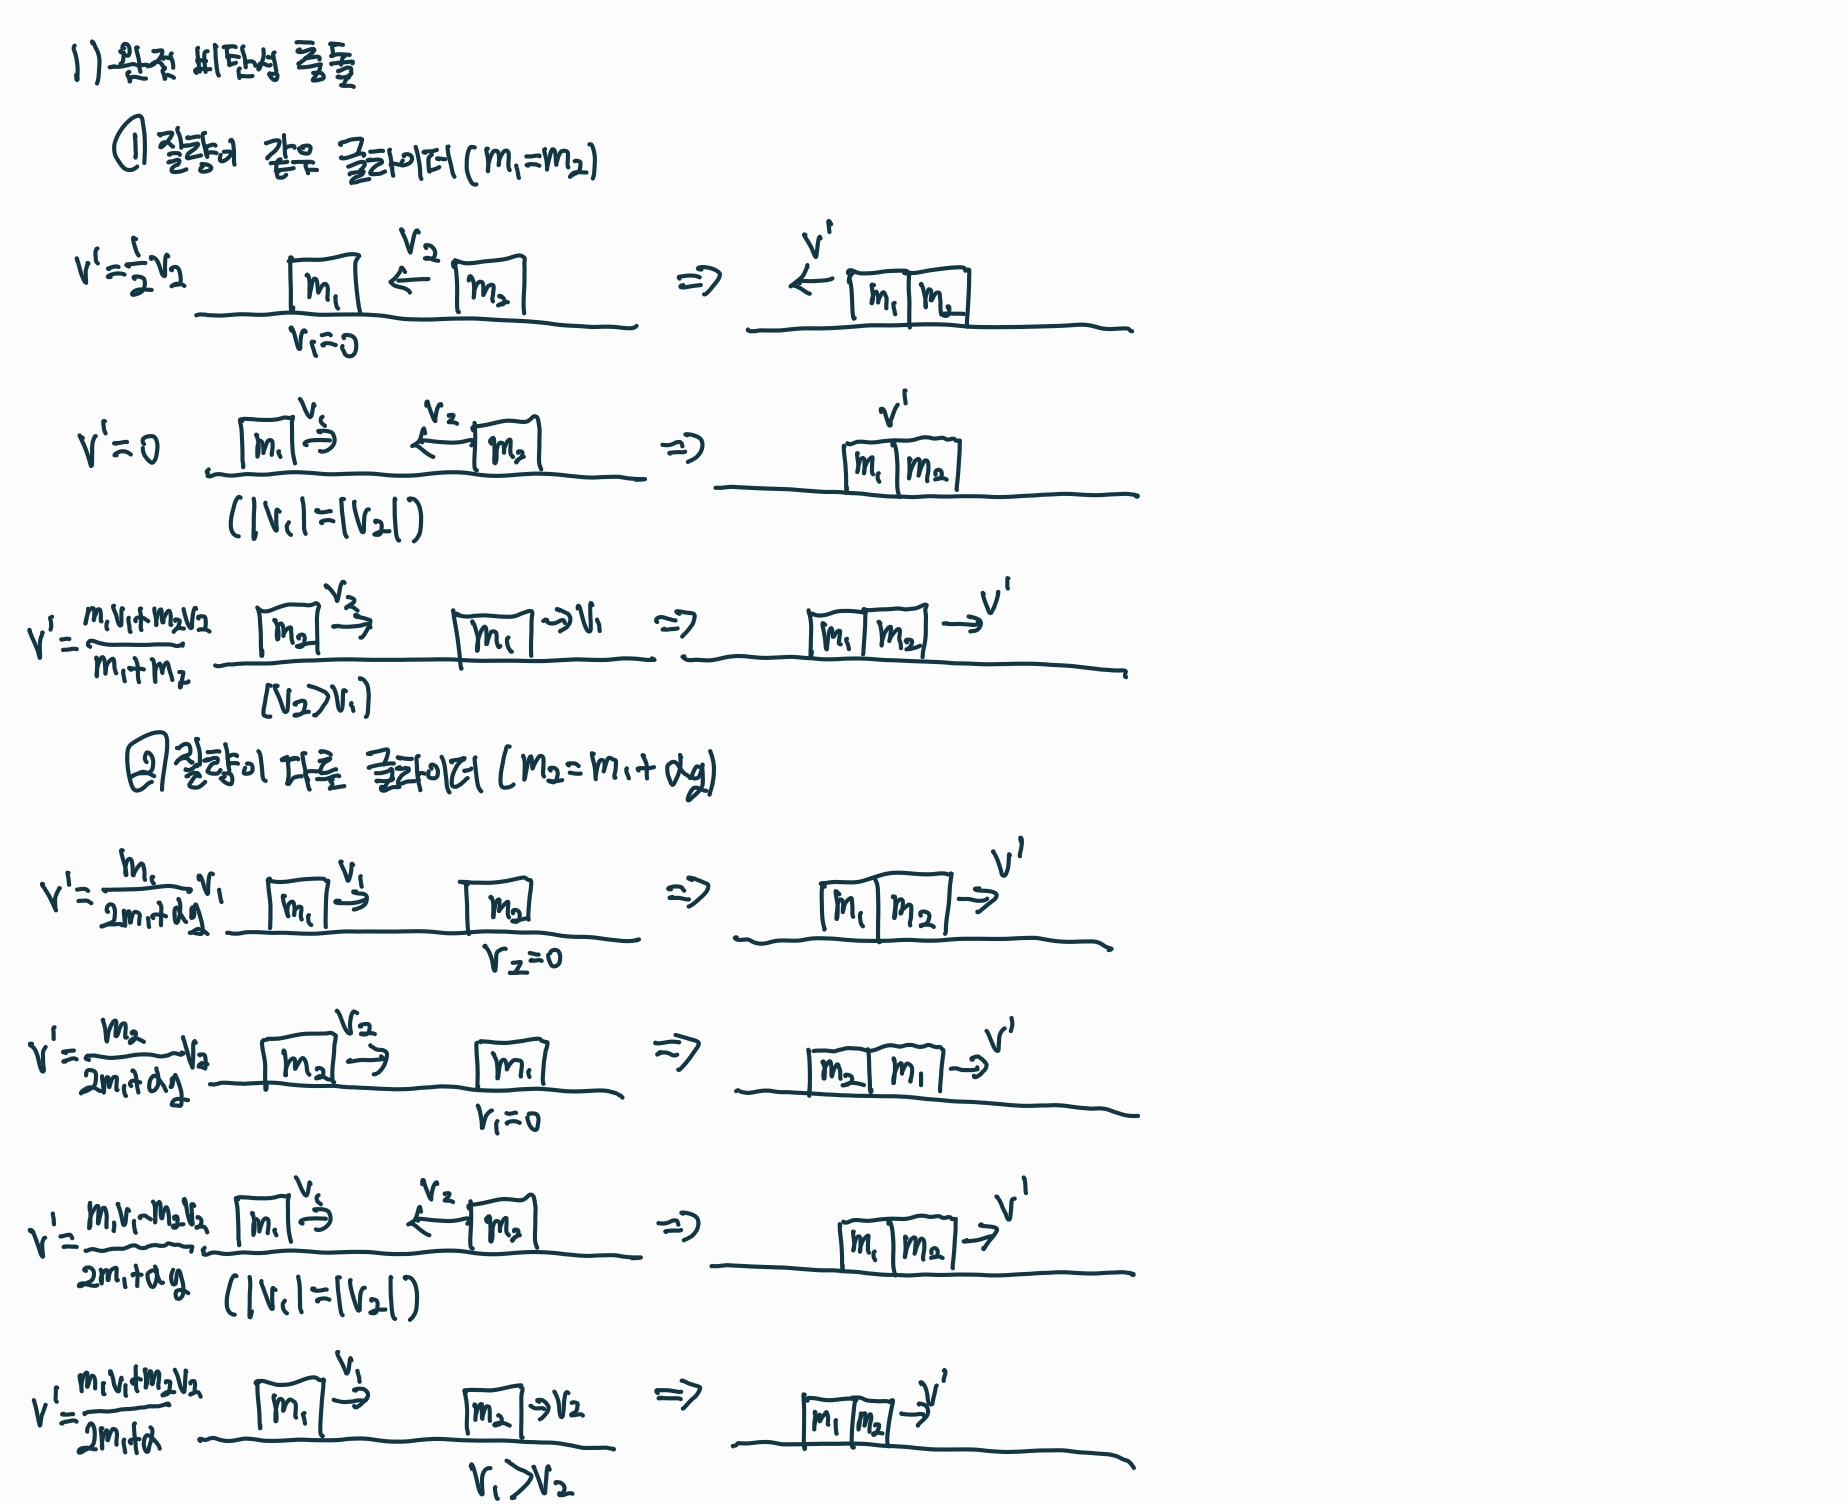 1) 완전 비탄성 충돌
① 질량이 같은 글라이더 (m₁=m₂)
v'=1/2 v₂ m₁ v₂ m₂ ⇒ v' m₁ m₂
v₁=0
v'=0 m₁ v₁ v₂ m₂ ⇒ v' m₁ m₂
(|v₁|=|v₂|)
v'=(m₁v₁+m₂v₂)/(m₁+m₂) m₂ v₂ m₁ →v₁ ⇒ m₁ m₂ → v'
(v₂>v₁)
② 질량이 다른 글라이더 (m₂=m₁+αg)
v'=m₁/(2m₁+αg) v₁ m₁ v₁ m₂ ⇒ m₁ m₂ → v'
v₂=0
v'=m₂/(2m₁+αg) v₂ m₂ v₂ m₁ ⇒ m₂ m₁ → v'
v₁=0
v'=(m₁v₁-m₂v₂)/(2m₁+αg) m₁ v₁ v₂ m₂ ⇒ m₁ m₂ → v'
(|v₁|=|v₂|)
v'=(m₁v₁+m₂v₂)/(2m₁+α) m₁ v₁ m₂ →v₂ ⇒ m₁ m₂ → v'
v₁>v₂